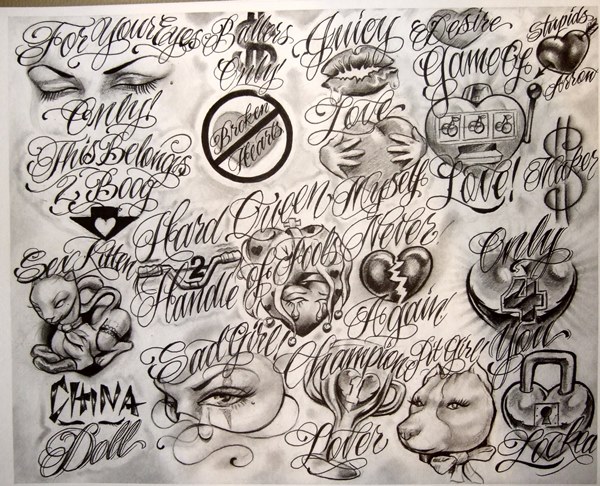 For Your Eyes
Only!
Ballers
$
Only
Broken
Hearts
Juicy
Desire
Stupids
Arrow
Game Of
Love!
Love
Myself
This Belongs
2 Boog
$
Maker
Hard
2
Handle
Queen
Of Fools
Never
Again!
Only
4
You
Sex Kitten
CHINA
Doll
Sad Girl!
Champion
Lover
Pit Girl
Locked